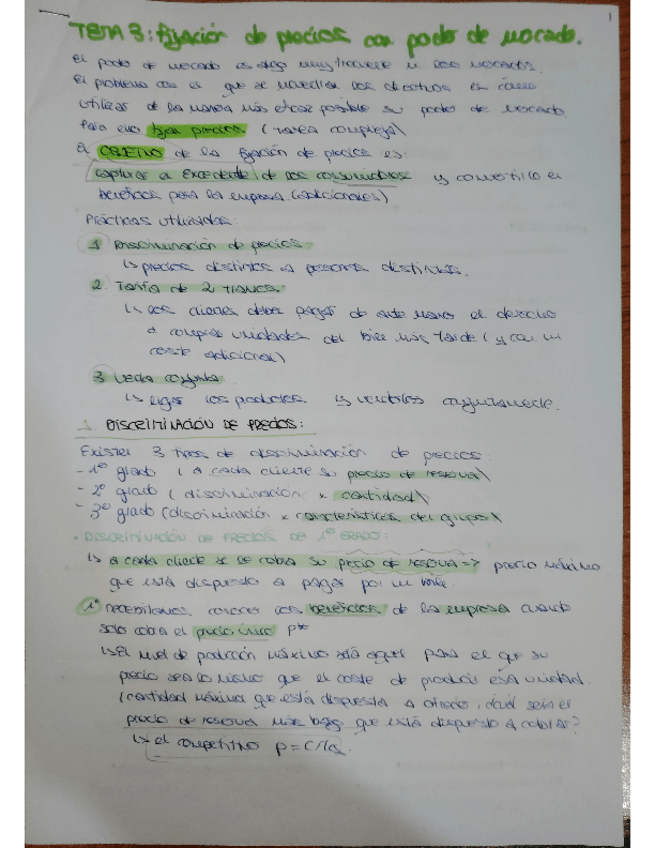 1
TEMA 3: fijación de precios con poder de mercado.
El poder de mercado es algo muy frecuente en los mercados.
El problema con el que se los directivos es cómo
utilizar de la manera más eficaz posible su poder de mercado.
Para ello fijan precios (tarea compleja)
El OBJETIVO de la fijación de precios es:
capturar el excedente de los consumidores y convertirlo en
beneficios para la empresa (adicionales)
Prácticas utilizadas:
1 Discriminación de precios.
↳ precios distintos a personas distintas.
2. Tarifa de 2 tramos
↳ los clientes deben pagar de ante mano el derecho
a comprar unidades del bien más tarde (y con un
coste adicional)
3 Venta conjunta
↳ ligar los productos ↳ venderlos conjuntamente.
1. DISCRIMINACIÓN DE PRECIOS:
Existen 3 tipos de discriminación de precios:
- 1º grado ( a cada cliente su precio de reserva)
- 2º grado (discriminación x cantidad)
- 3º grado (discriminación x características del grupo)
· DISCRIMINACIÓN DE PRECIOS DE 1º GRADO:
↳ a cada cliente se le cobra su precio de reserva => precio máximo
que está dispuesto a pagar por un bien.
1º necesitamos conocer los beneficios de la empresa cuando
solo cobra el precio único P*
↳ El nivel de producción máximo será aquel para el que su
precio sea lo mismo que el coste de producir esa unidad.
(cantidad máxima que está dispuesta a ofrecer, ¿cuál sería el
precio de reserva más bajo que está dispuesto a cobrar?
↳ el competitivo P=CMg